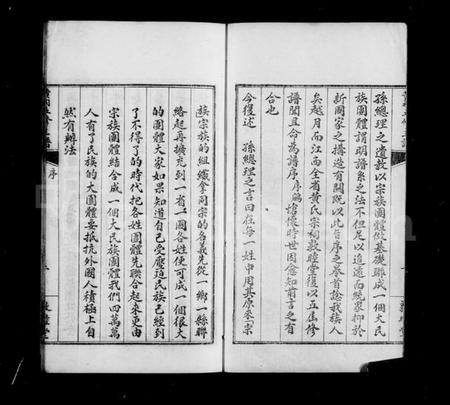 孫總理之遺教以宗族團體做基礎聯成一個大民
族團體謂明譜系之法不但足以追遠而統眾抑於
新國家之搆造有關既以此自序之卷首諗我族人
矣越月而江西全省黃氏宗祠敦睦堂復以五屆修
譜聞且命為譜序序焉愴懷時世因愈知前言之有
合也
今復述　孫總理之言曰在每一姓中用其原來宗
族宗族的組織拿同宗的名義先從一鄉一縣聯
絡起再擴充到一省一國各姓便可成一個很大
的團體大家如果知道自己受壓迫民族已經到
了不得了的時代把各姓團體先聯合起來更由
宗族團體結合成一個大民族團體我們四萬萬
人有了民族的大團體要抵抗外國人積極上自
然有辦法
序
敦睦堂